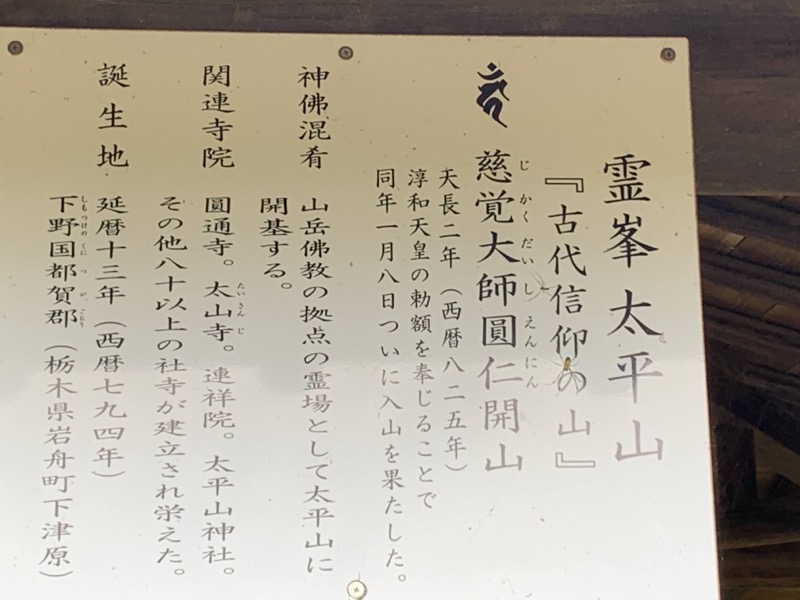 霊峯太平山
『古代信仰の山』
慈覚大師圓仁開山
じかくだいしえんにん
天長二年（西暦八二五年）
淳和天皇の勅額を奉じることで
同年一月八日ついに入山を果たした。
神佛混肴　山岳佛教の拠点の霊場として太平山に
開基する。
関連寺院　圓通寺。太山寺。連祥院。太平山神社。
たいさんじ
その他八十以上の社寺が建立され栄えた。
誕生地　延暦十三年（西暦七九四年）
下野国都賀郡（栃木県岩舟町下津原）
しもつけのくにつがごおり